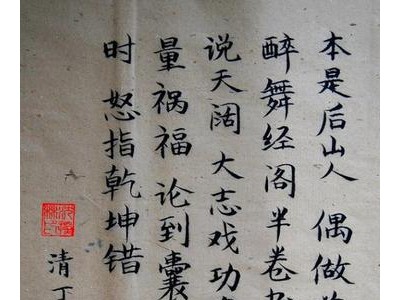 本是后山人 偶做
醉舞经阁半卷
说天阔 大志戏功
量祸福 论到囊
时 怒指乾坤错
清 丁